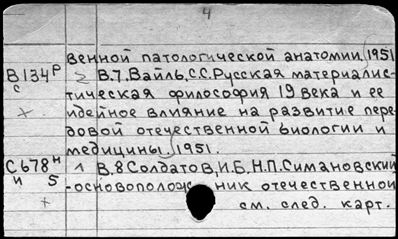 4
венной патологической анатомии, 1951
В134Р 2 В.7. Вайль, С.С. Русская материалис-
с тическая философия 19 века и ее
х идейное влияние на развитие пере-
довой отечественной биологии и
медицины, 1951.
С678н 1 В.8 Солдатов, И.Б. Н.П. Симановский
и 5 -основополож ник отечественной
х см. след. карт.